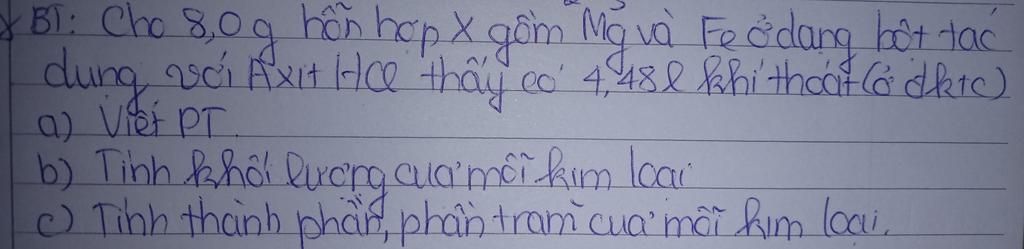 * BT: Cho 8,0g hỗn hợp X gồm Mg và Fe ở dạng bột tác
dụng với Axit HCl thấy có 4,48l khí thoát (ở đktc)
a) Viết PT.
b) Tính khối lượng của mỗi kim loại
c) Tính thành phần, phần trăm của mỗi kim loại.